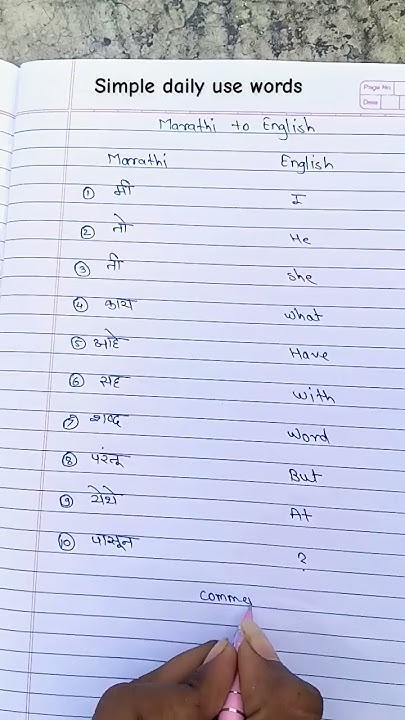 Simple daily use words
Page No.
Date
Marathi to English
Marathi English
① मी I
② तो He
③ ती she
④ काय what
⑤ आहे Have
⑥ सह with
⑦ शब्द Word
⑧ परंतू But
⑨ येथे At
⑩ पासून ?
comme